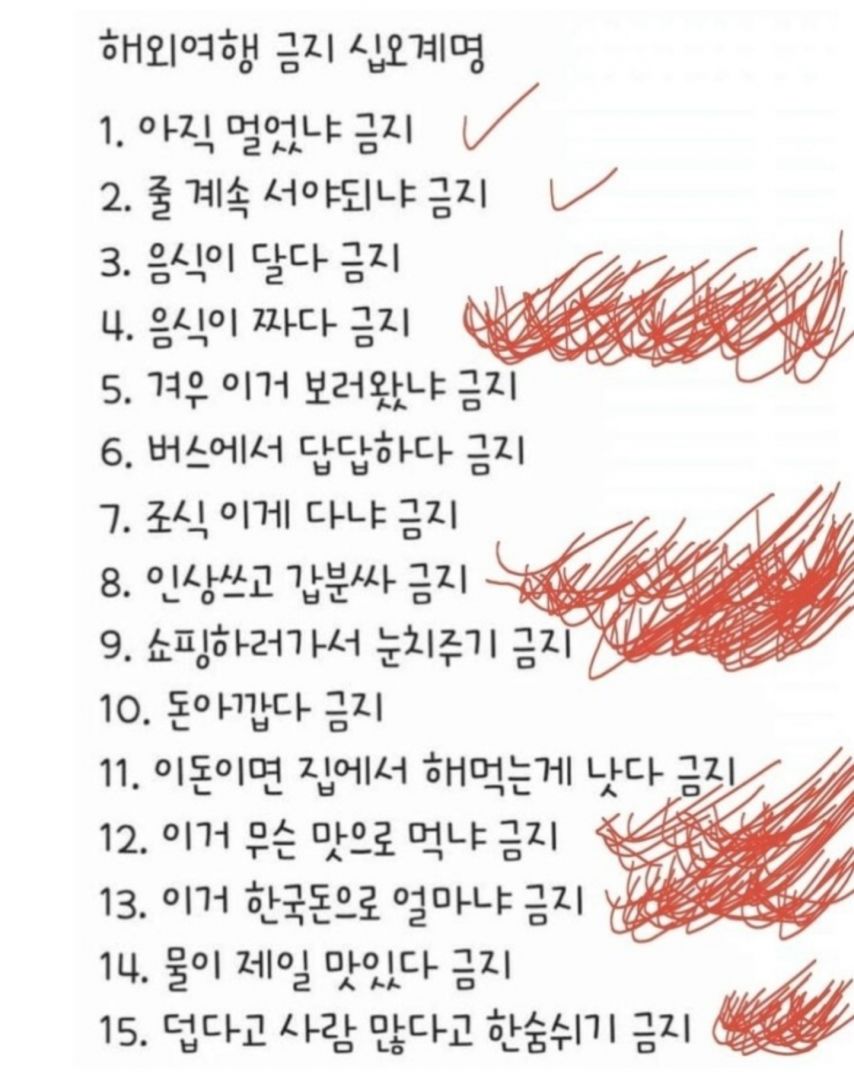 해외여행 금지 십오계명
1. 아직 멀었냐 금지
2. 줄 계속 서야되냐 금지
3. 음식이 달다 금지
4. 음식이 짜다 금지
5. 겨우 이거 보러왔냐 금지
6. 버스에서 답답하다 금지
7. 조식 이게 다냐 금지
8. 인상쓰고 갑분싸 금지
9. 쇼핑하러가서 눈치주기 금지
10. 돈아깝다 금지
11. 이돈이면 집에서 해먹는게 낫다 금지
12. 이거 무슨 맛으로 먹냐 금지
13. 이거 한국돈으로 얼마냐 금지
14. 물이 제일 맛있다 금지
15. 덥다고 사람 많다고 한숨쉬기 금지